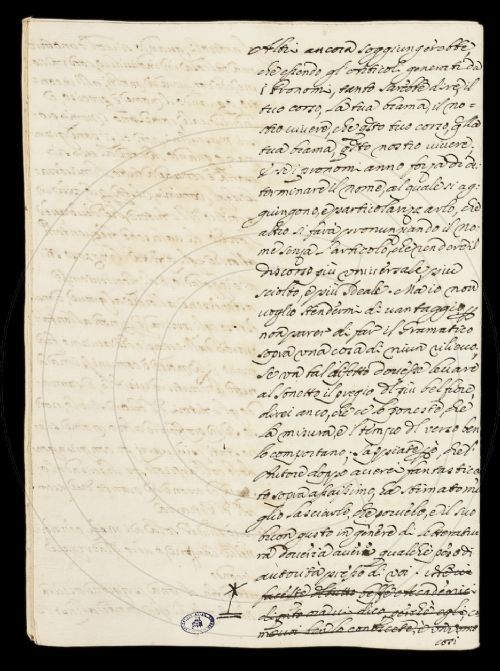 Altri ancora soggiungerebbe,
che essendo gl'Articoli generati da
i Pronomi, tanto sarebbe dire, il
tuo corso, la tua brama, il no-
stro vivere, che questo tuo corso, quella
tua brama, questo nostro vivere;
E se i pronomi anno forza di de-
terminare il nome, al quale si ag-
giungono, e particolarizzarlo, che
altro si farà pronunziando il no-
me senza l'articolo, che rendere il
discorso più universale, più
sciolto, e più Ideale. Ma io non
voglio stendermi di vantaggio per
non parer di far il Gramatico
sopra una cosa di niun rilievo.
Se un tal difetto dovesse lasciare
al sonetto il pregio di più bel fiore,
direi anco, che ce lo ponesse, che
la misura, e 'l tempo di verso ben
lo comportano; Sappiate però, che l'
Autore doppo avervi fantastica-
to sopra assaissimo, ha stimato me-
glio lasciarlo, che porvelo, e il suo
buon gusto in genere di letteratu-
ra dovria avere qualche peso di
autorità presso di voi.
così